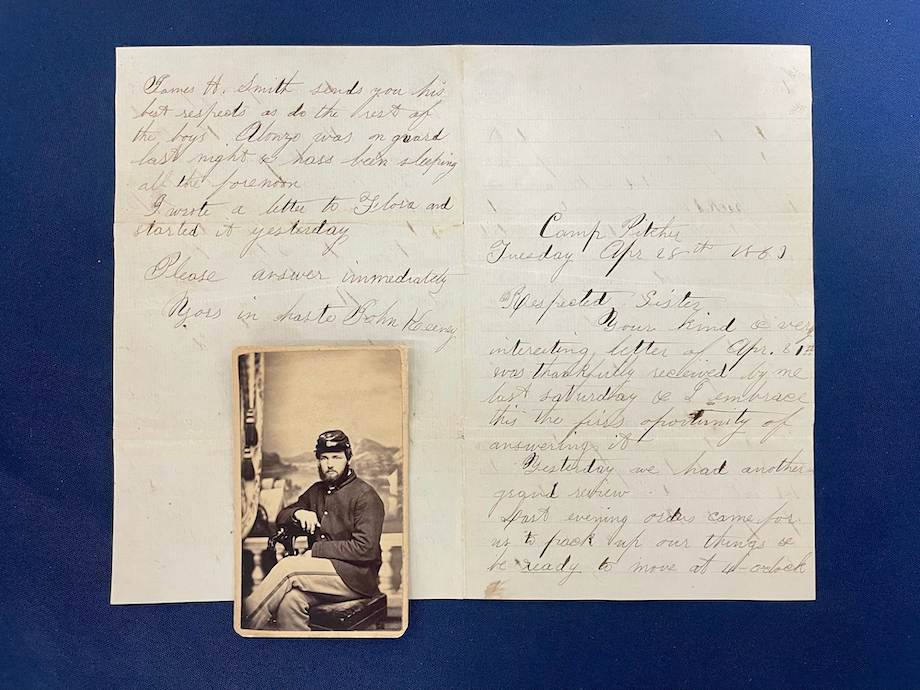 James H. Smith sends you his
best respects as do the rest of
the boys. Alonzo was on guard
last night & hass been sleeping
all the forenoon
I wrote a letter to Flora and
started it yesterday
Please answer immediately
Yors in haste John Keeney
Camp Pitcher
Tuesday Apr 28th 1863
Respected Sister
Your kind & very
interesting letter of Apr. 21st
was thankfully received by me
last saturday & I embrace
this the first oportunity of
answering it
Yesterday we had another
grand review.
Last evening orders came for
us to pack up our things &
be ready to move at oclock